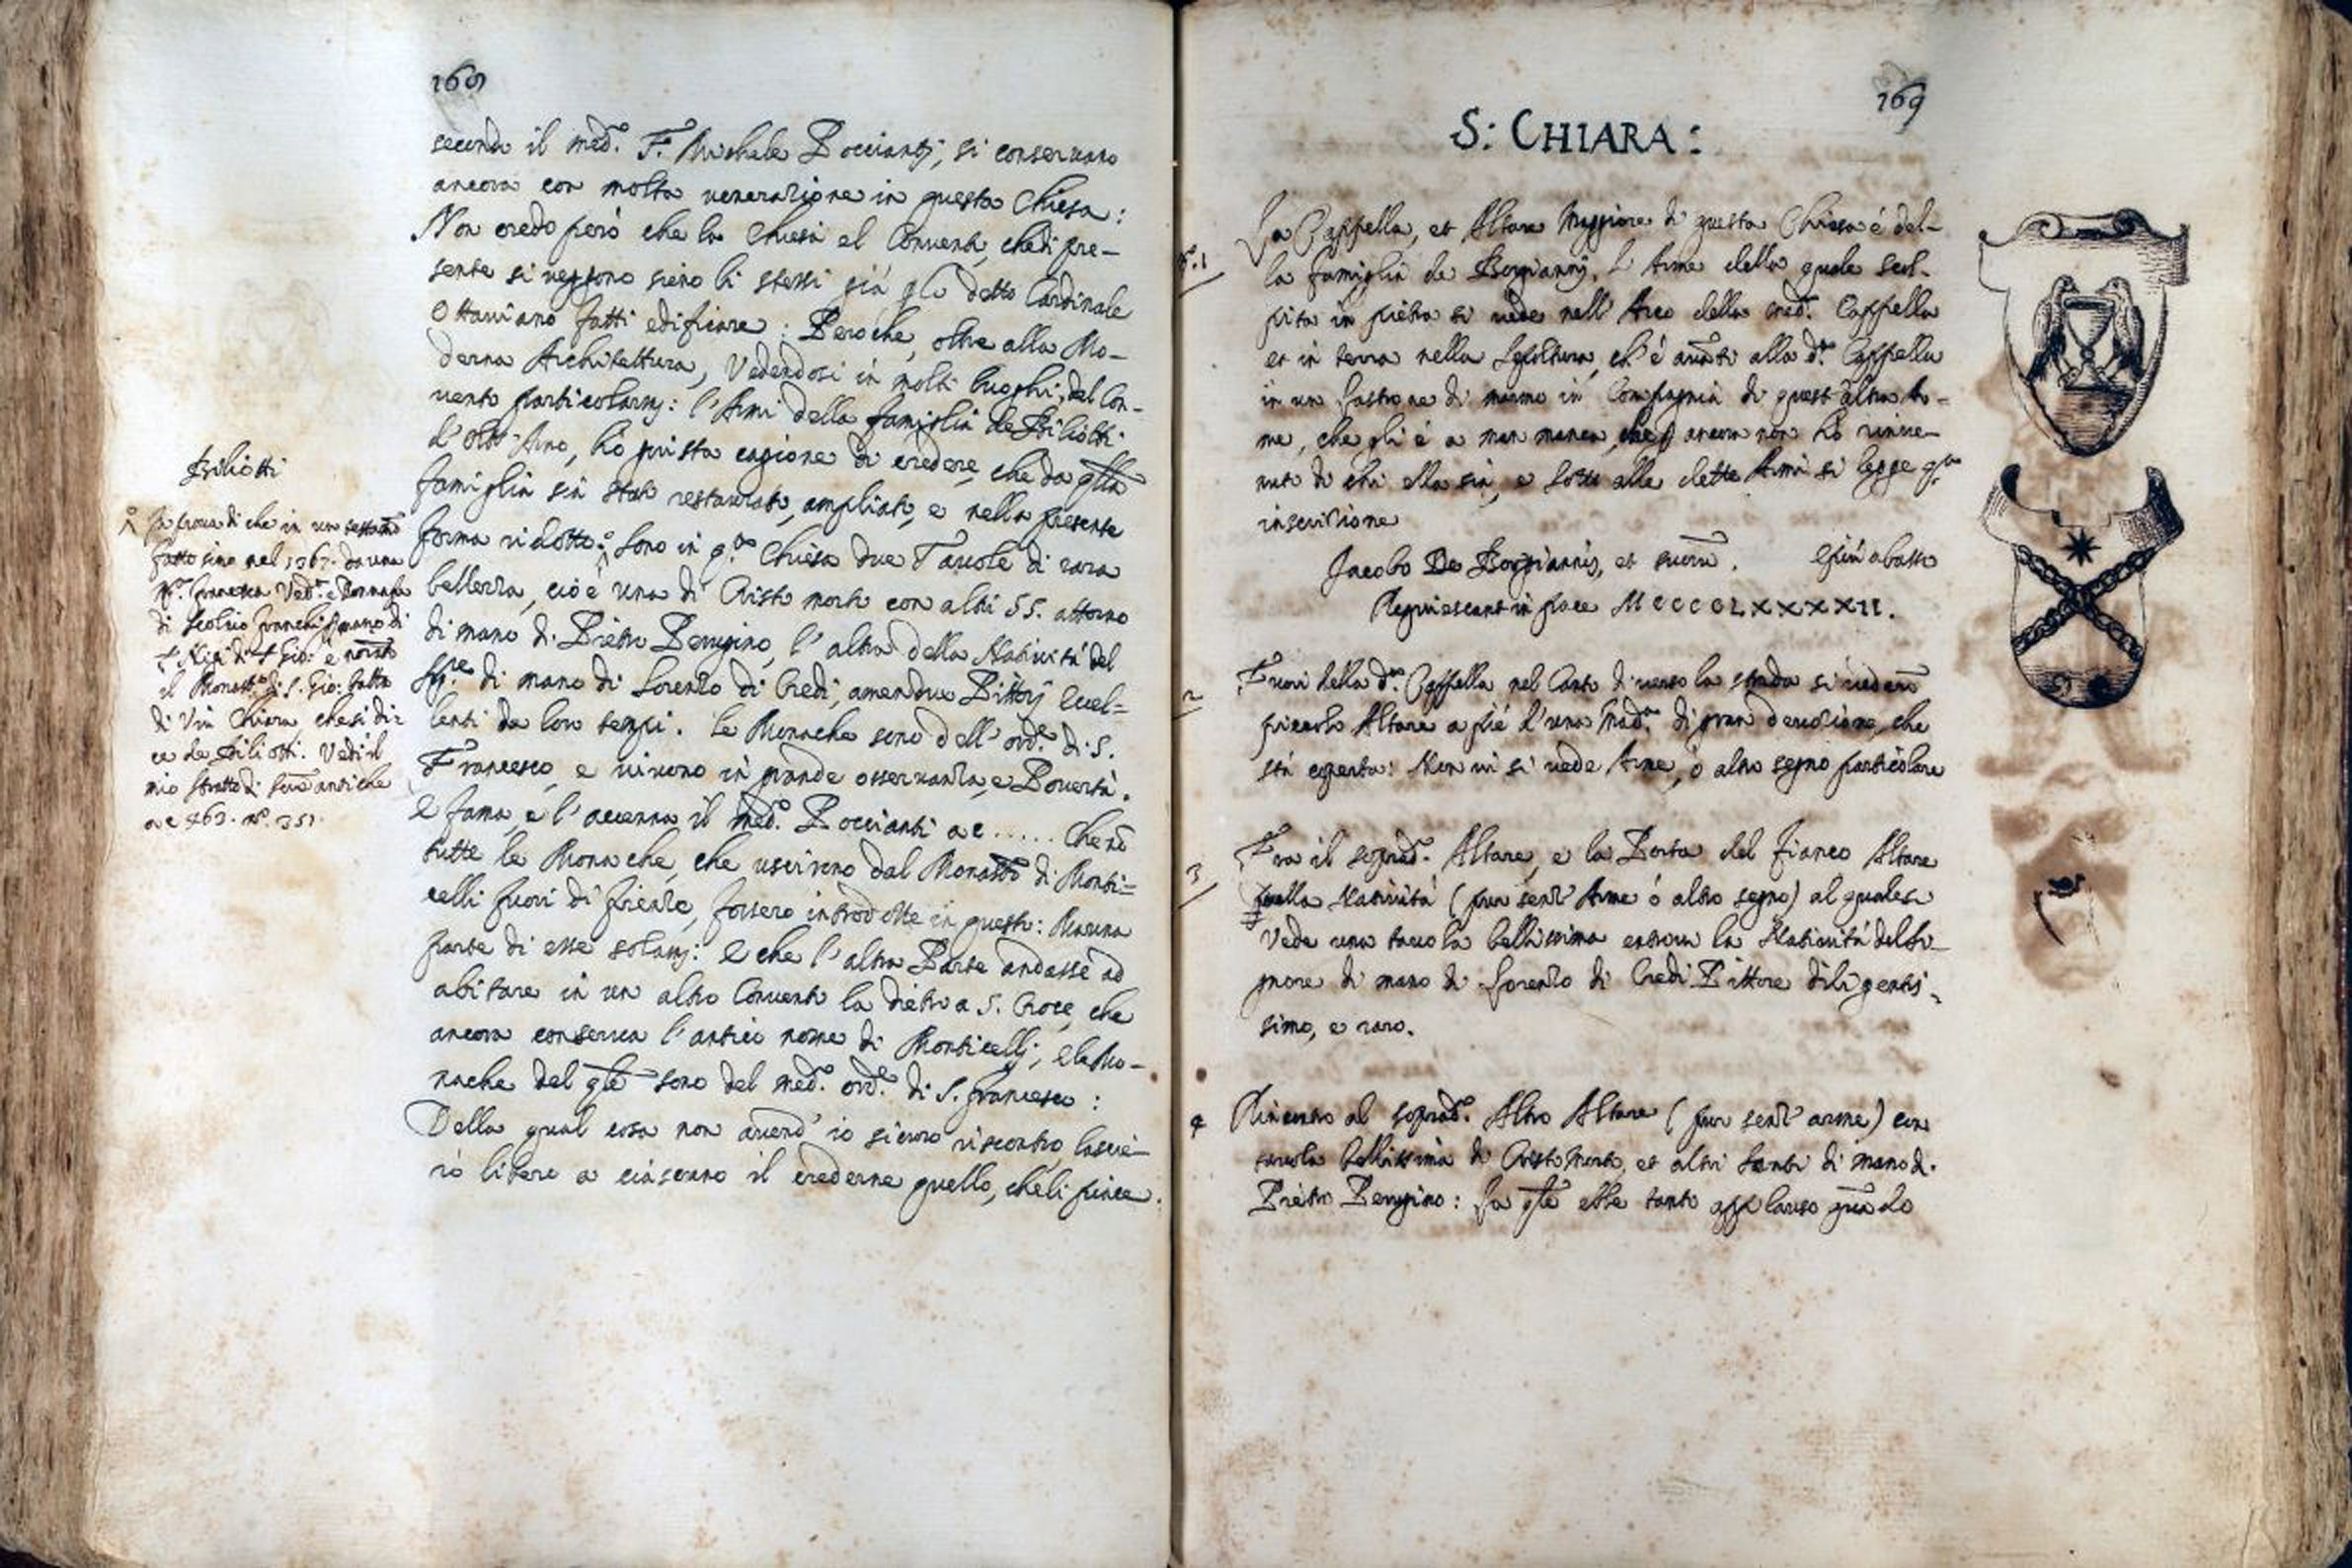 168
secondo il med.º F. Michele Poccianti, si conservano
ancora con molta venerazione in questa Chiesa:
Non credo però che la Chiesa el Convento, che di pre-
sente si veggono sieno li stessi già detto Cardinale
Ottaviano fatti edificare: Però che, oltre alla Mo-
derna Architettura, Vedendosi in molti luoghi, del Con-
vento l'Armi della famiglia de Biliotti
d'Oltr'Arno, hò giusta cagione di credere, che da qlla
famiglia sia stato restaurato, ampliato, e nella presente
forma ridotto: Sono in q.ta Chiesa due Tavole di rara
bellezza, cioè una di Cristo morto con altri SS. attorno
di mano di Pietro Perugino, l'altra della Natività del
Sig.re di mano di Lorenzo di Credi, amendue Pittorj Eccel=
lenti da lor tempi. Le Monache sono dell'ord.e di S.
Francesco, e vivono in grande osservanza, e Povertà.
E fama, e l'accenna il med.º Poccianti a c ..... Che nō
tutte le Monache, che uscirono dal Monastō di Monti=
celli fuori di firenze, fossero introdotte in questo: Ma una
parte di esse E che l'altra Parte andasse ad
abitare in un altro Convento la dietro a S. Croce, che
ancora conserva l'antico nome di Monticellj; E le Mo-
nache del qle sono del med.º ord.e di S. francesco:
Della qual cosa non avend' io sicuro riscontro, lascie-
rò libero a ciascuno il crederne quello, che li piace.
Biliotti
In prova di che in un
fatto sino nel 1367. da una
Mª. francesca Ved.ª
di
è
il Monast.º di S. Gio:
di Via Chiara che si di
ce de Biliotti. Vedi il
mio antiche
a c 463. nº. 351.
169
S: CHIARA:
nº.1
La Cappella, et Altare Maggiore di questa Chiesa è del-
la famiglia de Borgiannj. L'Arme della quale scol-
pita in pietra si vede nell'Arco della med.ª Cappella
et in terra nella Sepoltura, ch'è avāti alla d.ª Cappella
in un lastrone di marmo in Compagnia di quest'altra Ar-
me, che gli è a man manca, ancora non hò rinve-
nuto di chi ella sia, e sotto alle dette Armi si legge q.ta
inscrizione
Jacobo De Borgiannis, et suorū. E più abasso
Requiescant in pace MCCCCLXXXXII.
2
Fuori della d.ª Cappella nel Canto di verso la strada si vede un
piccolo Altare a piè d'una Mad.na di gran devozione, che
stà coperta: Non vi si vede Arme, ò altro segno particolare
3
Fra il soprad.º Altare, e la Porta del fianco Altare
della Natività (pur senz'Arme ò altro segno) al quale si
Vede una tavola bellissima entrovi la Natività del Si-
gnore di mano di Lorenzo di Credi Pittore diligentis-
simo, e raro.
4
Rincontro al soprad.º Altro Altare (pur senz'arme) con
tavola bellissima di Cristo Morto, et altri Santi di mano di
Pietro Perugino: La qle ebbe tanto applauso quādo